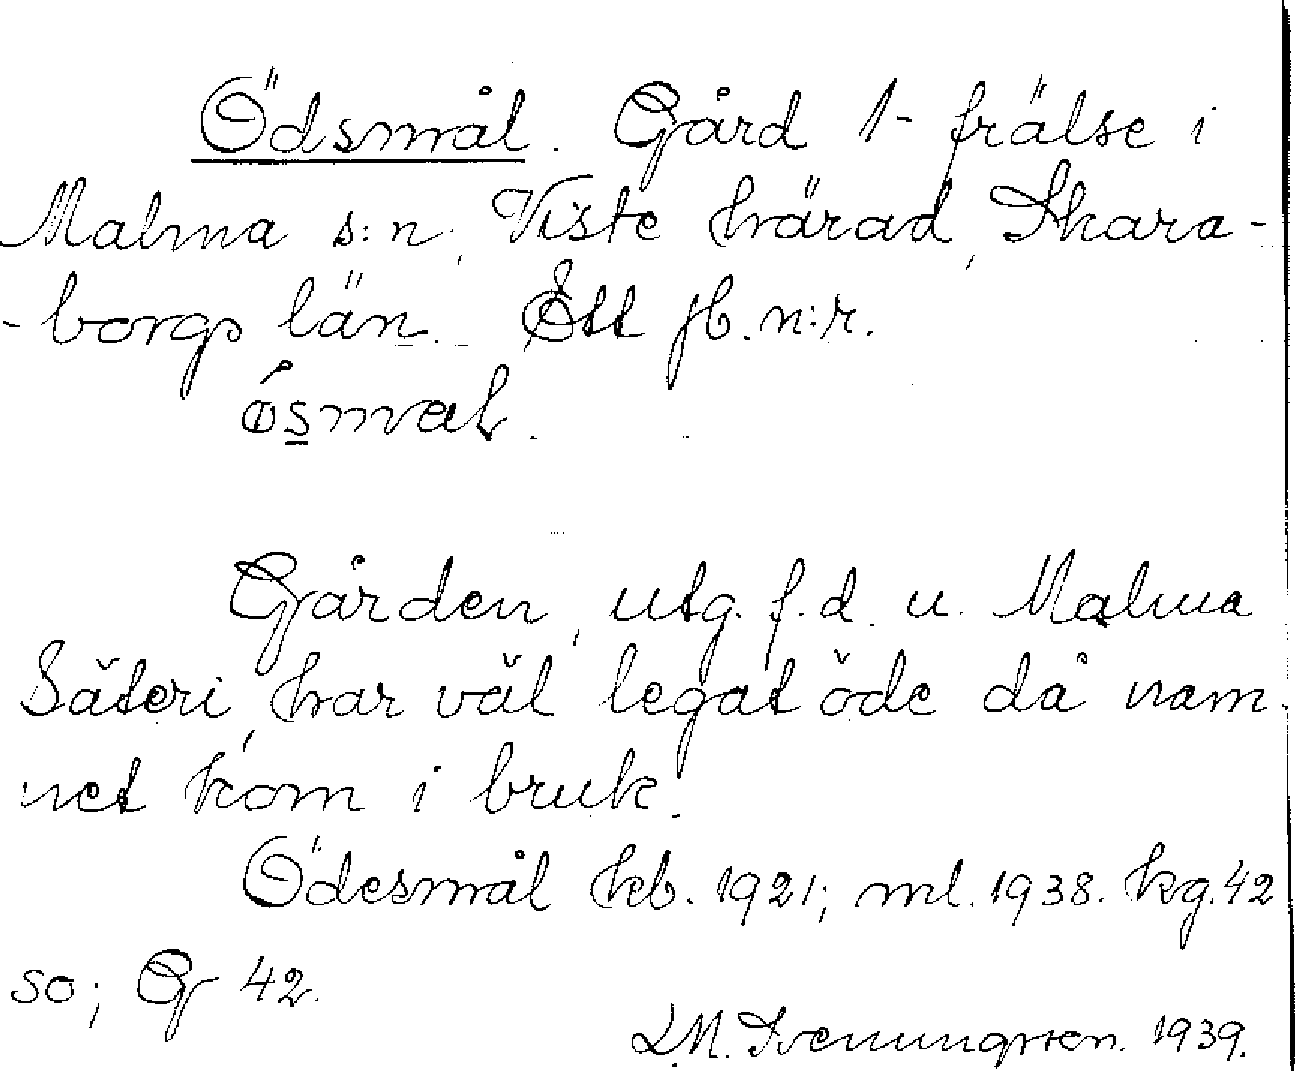 Ödsmål. Gård 1- frälse i
Malma s:n, Viste härad, Skara-
-borgs län. Ett jb. n:r.
ósmal.
Gården, utg. f.d. u. Malma
Säteri, har väl legat öde då nam-
net kom i bruk.
Ödesmål kb. 1921; ml. 1938. kg. 42
so; G 42.
L.M. Svenungsson. 1939.